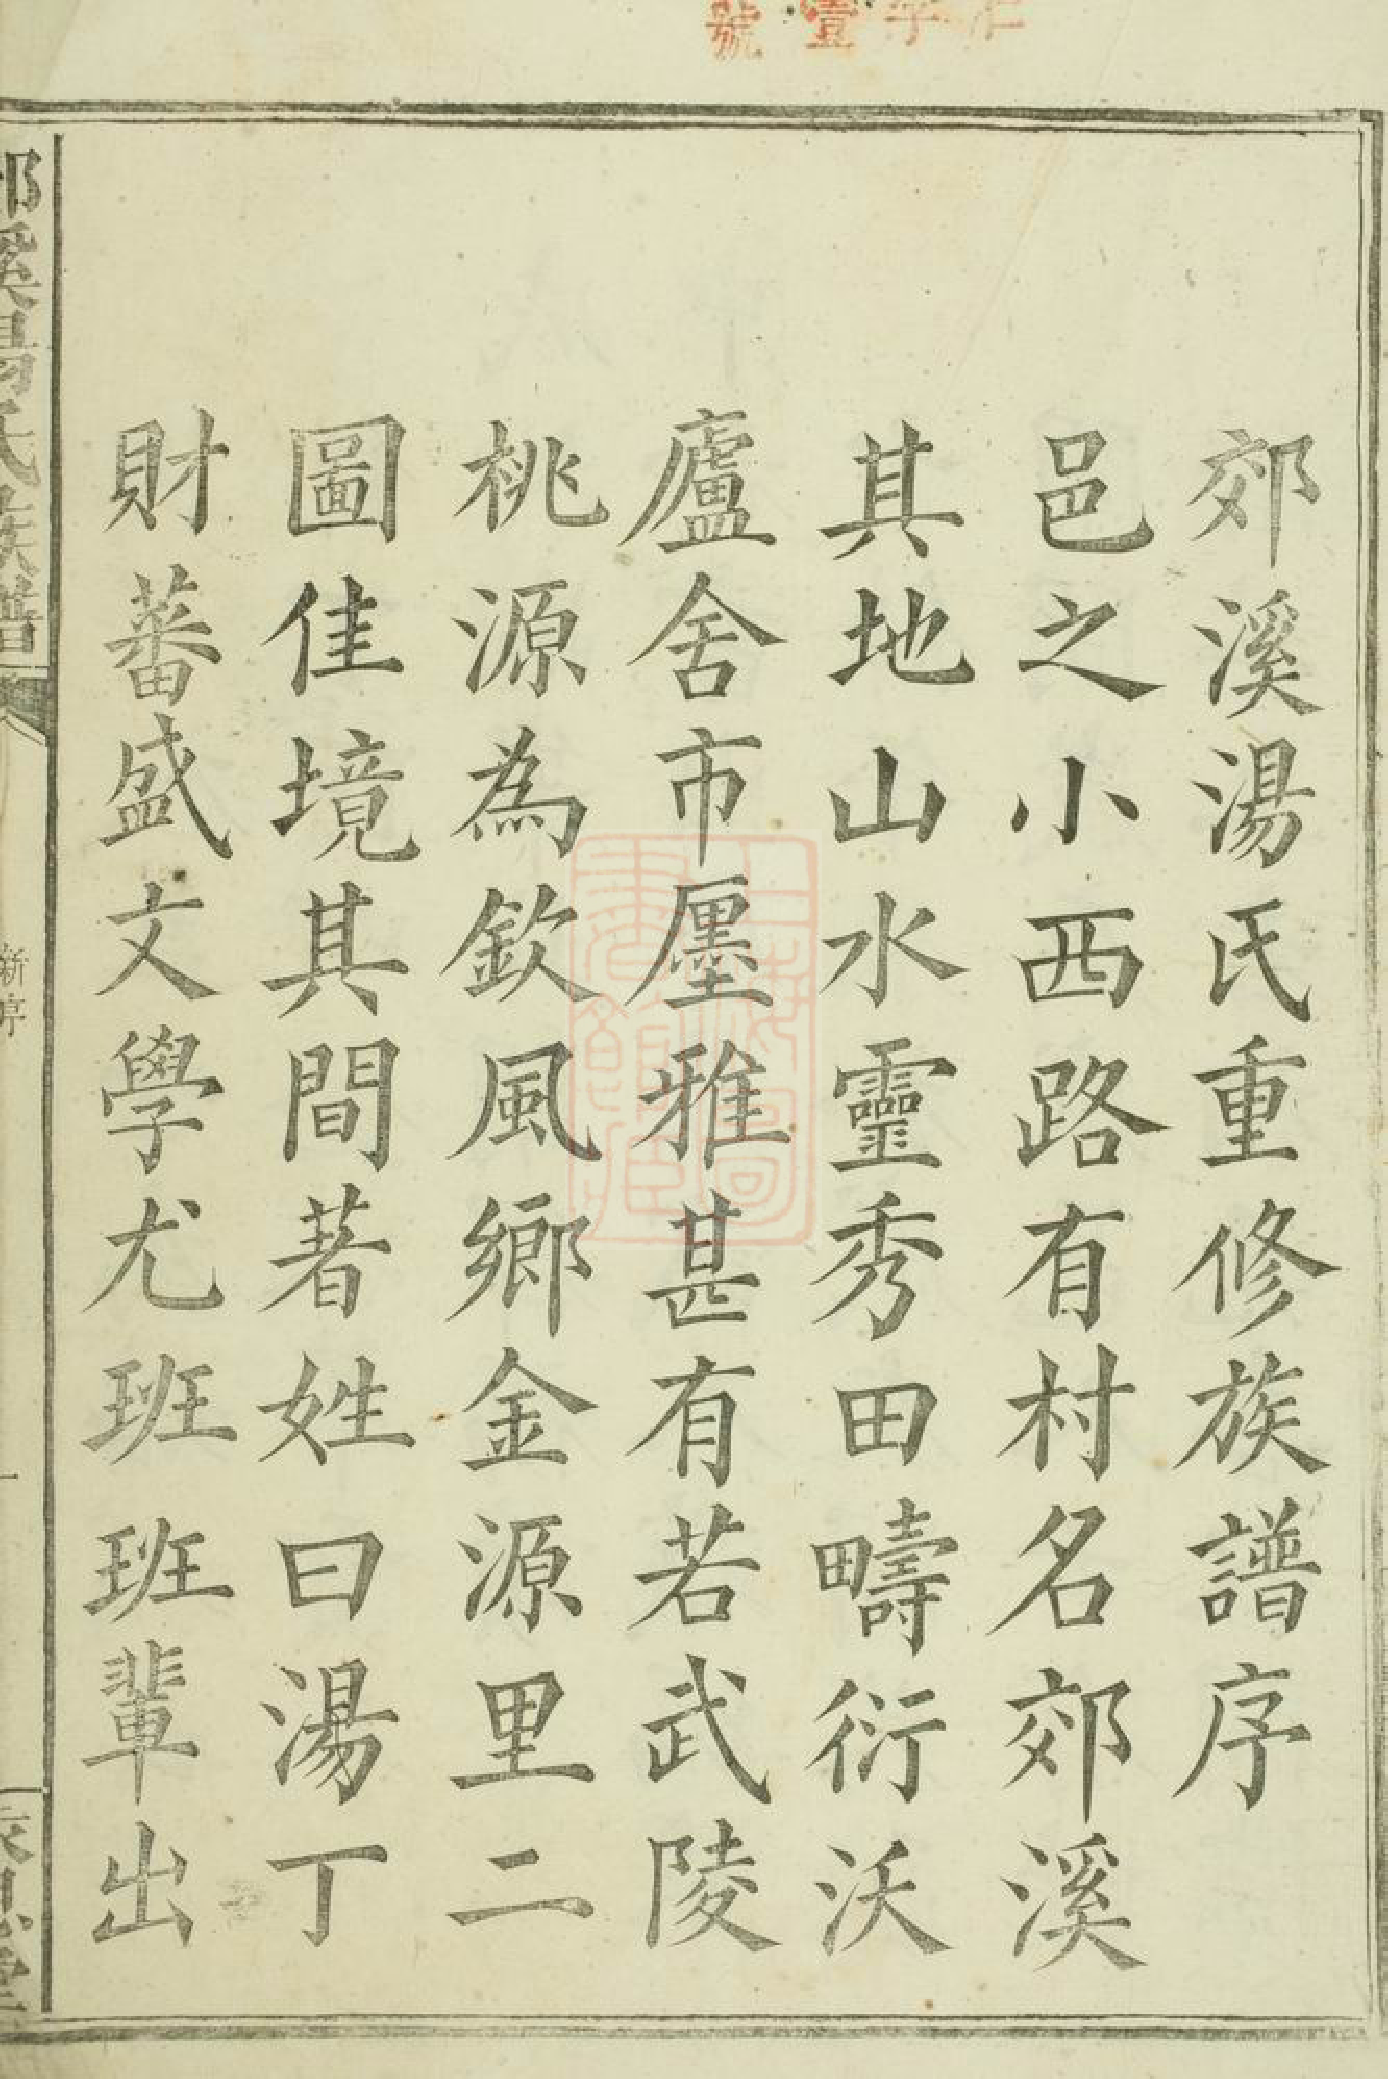 字壹號
郊溪湯氏重修族譜序
邑之小西路有村名郊溪
其地山水靈秀田疇衍沃
廬舍市㕓雅甚有若武陵
桃源為欽風鄉金源里二
圖佳境其間著姓曰湯丁
財蕃盛文學尤班班輩出
郊溪湯氏族譜
新序
一